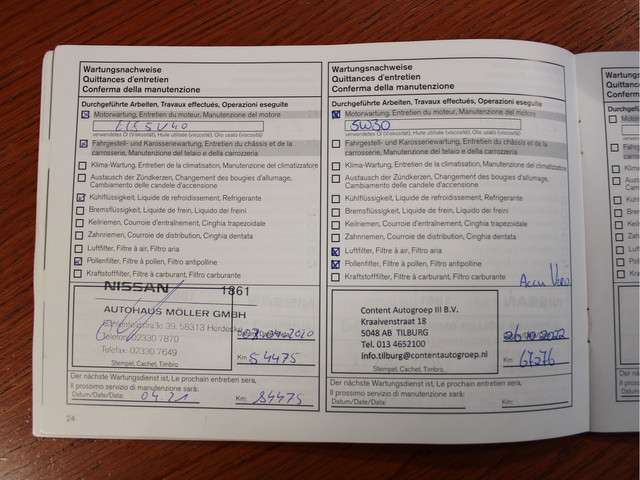 Wartungsnachweise
Quittances d'entretien
Conferma della manutenzione
Durchgeführte Arbeiten, Travaux effectués, Operazioni eseguite
Motorwartung, Entretien du moteur, Manutenzione del motore
verwendetes Öl (Viskosität), Huile utilisée (viscosité), Olio usato (viscosità)
Fahrgestell- und Karosseriewartung, Entretien du châssis et de la
carrosserie, Manutenzione del telaio e della carrozzeria
Klima-Wartung, Entretien de la climatisation, Manutenzione del climatizzatore
Austausch der Zündkerzen, Changement des bougies d'allumage,
Cambiamento delle candele d'accensione
Kühlflüssigkeit, Liquide de refroidissement, Refrigerante
Bremsflüssigkeit, Liquide de frein, Liquido dei freini
Keilriemen, Courroie d'entraînement, Cinghia trapezoidale
Zahnriemen, Courroie de distribution, Cinghia dentata
Luftfilter, Filtre à air, Filtro aria
Pollenfilter, Filtre à pollen, Filtro antipolline
Kraftstofffilter, Filtre à carburant, Filtro carburante
NISSAN 1861
AUTOHAUS MÖLLER GMBH
39, 58313 Herdecke
Telefon 02330 7870
Telefax: 02330 7649
07.04.2020
Km 54475
Stempel, Cachet, Timbro
Der nächste Wartungsdienst ist, Le prochain entretien sera,
Il prossimo servizio di manutenzione sarà:
Datum/Date/Data: 04.21 Km: 84475
24
Wartungsnachweise
Quittances d'entretien
Conferma della manutenzione
Durchgeführte Arbeiten, Travaux effectués, Operazioni eseguite
Motorwartung, Entretien du moteur, Manutenzione del motore
5W30
verwendetes Öl (Viskosität), Huile utilisée (viscosité), Olio usato (viscosità)
Fahrgestell- und Karosseriewartung, Entretien du châssis et de la
carrosserie, Manutenzione del telaio e della carrozzeria
Klima-Wartung, Entretien de la climatisation, Manutenzione del climatizzatore
Austausch der Zündkerzen, Changement des bougies d'allumage,
Cambiamento delle candele d'accensione
Kühlflüssigkeit, Liquide de refroidissement, Refrigerante
Bremsflüssigkeit, Liquide de frein, Liquido dei freini
Keilriemen, Courroie d'entraînement, Cinghia trapezoidale
Zahnriemen, Courroie de distribution, Cinghia dentata
Luftfilter, Filtre à air, Filtro aria
Pollenfilter, Filtre à pollen, Filtro antipolline
Kraftstofffilter, Filtre à carburant, Filtro carburante
Content Autogroep III B.V.
Kraaivenstraat 18
5048 AB TILBURG
Tel. 013 4652100
info.tilburg@contentautogroep.nl
26.10.2022
Km 67276
Stempel, Cachet, Timbro
Der nächste Wartungsdienst ist, Le prochain entretien sera,
Il prossimo servizio di manutenzione sarà:
Datum/Date/Data: Km:
Wartung
Quittan
Conferm
Durchgefü